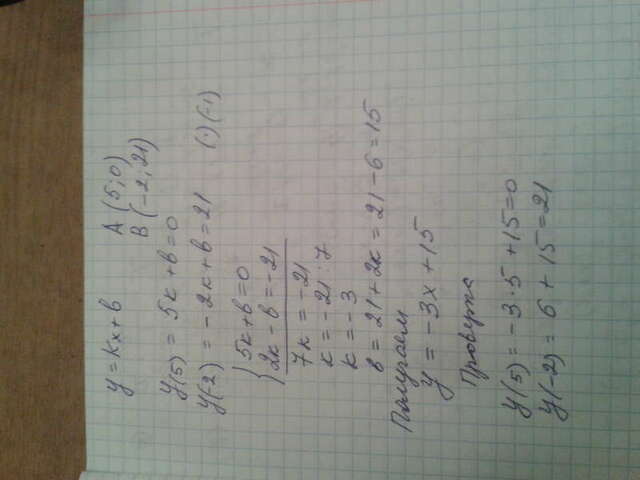 y = kx + b A (5; 0)
B (-2; 21)
y(5) = 5k + b = 0
y(2) = -2k + b = 21 (·)(-1)
{ 5k + b = 0
2k - b = -21
7k = -21
k = -21 : 7
k = -3
b = 21 + 2k = 21 - 6 = 15
Получаем
y = -3x + 15
Проверка
y(5) = -3·5 + 15 = 0
y(-2) = 6 + 15 = 21